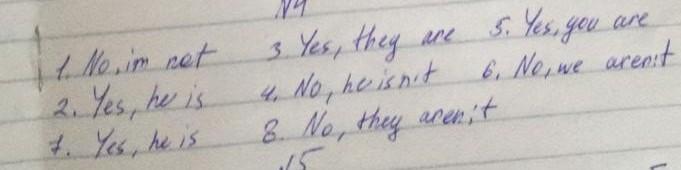 N4
1. No, im not 3. Yes, they are 5. Yes, you are
2. Yes, he is 4. No, he isn't 6. No, we aren't
7. Yes, he is 8. No, they aren't
15